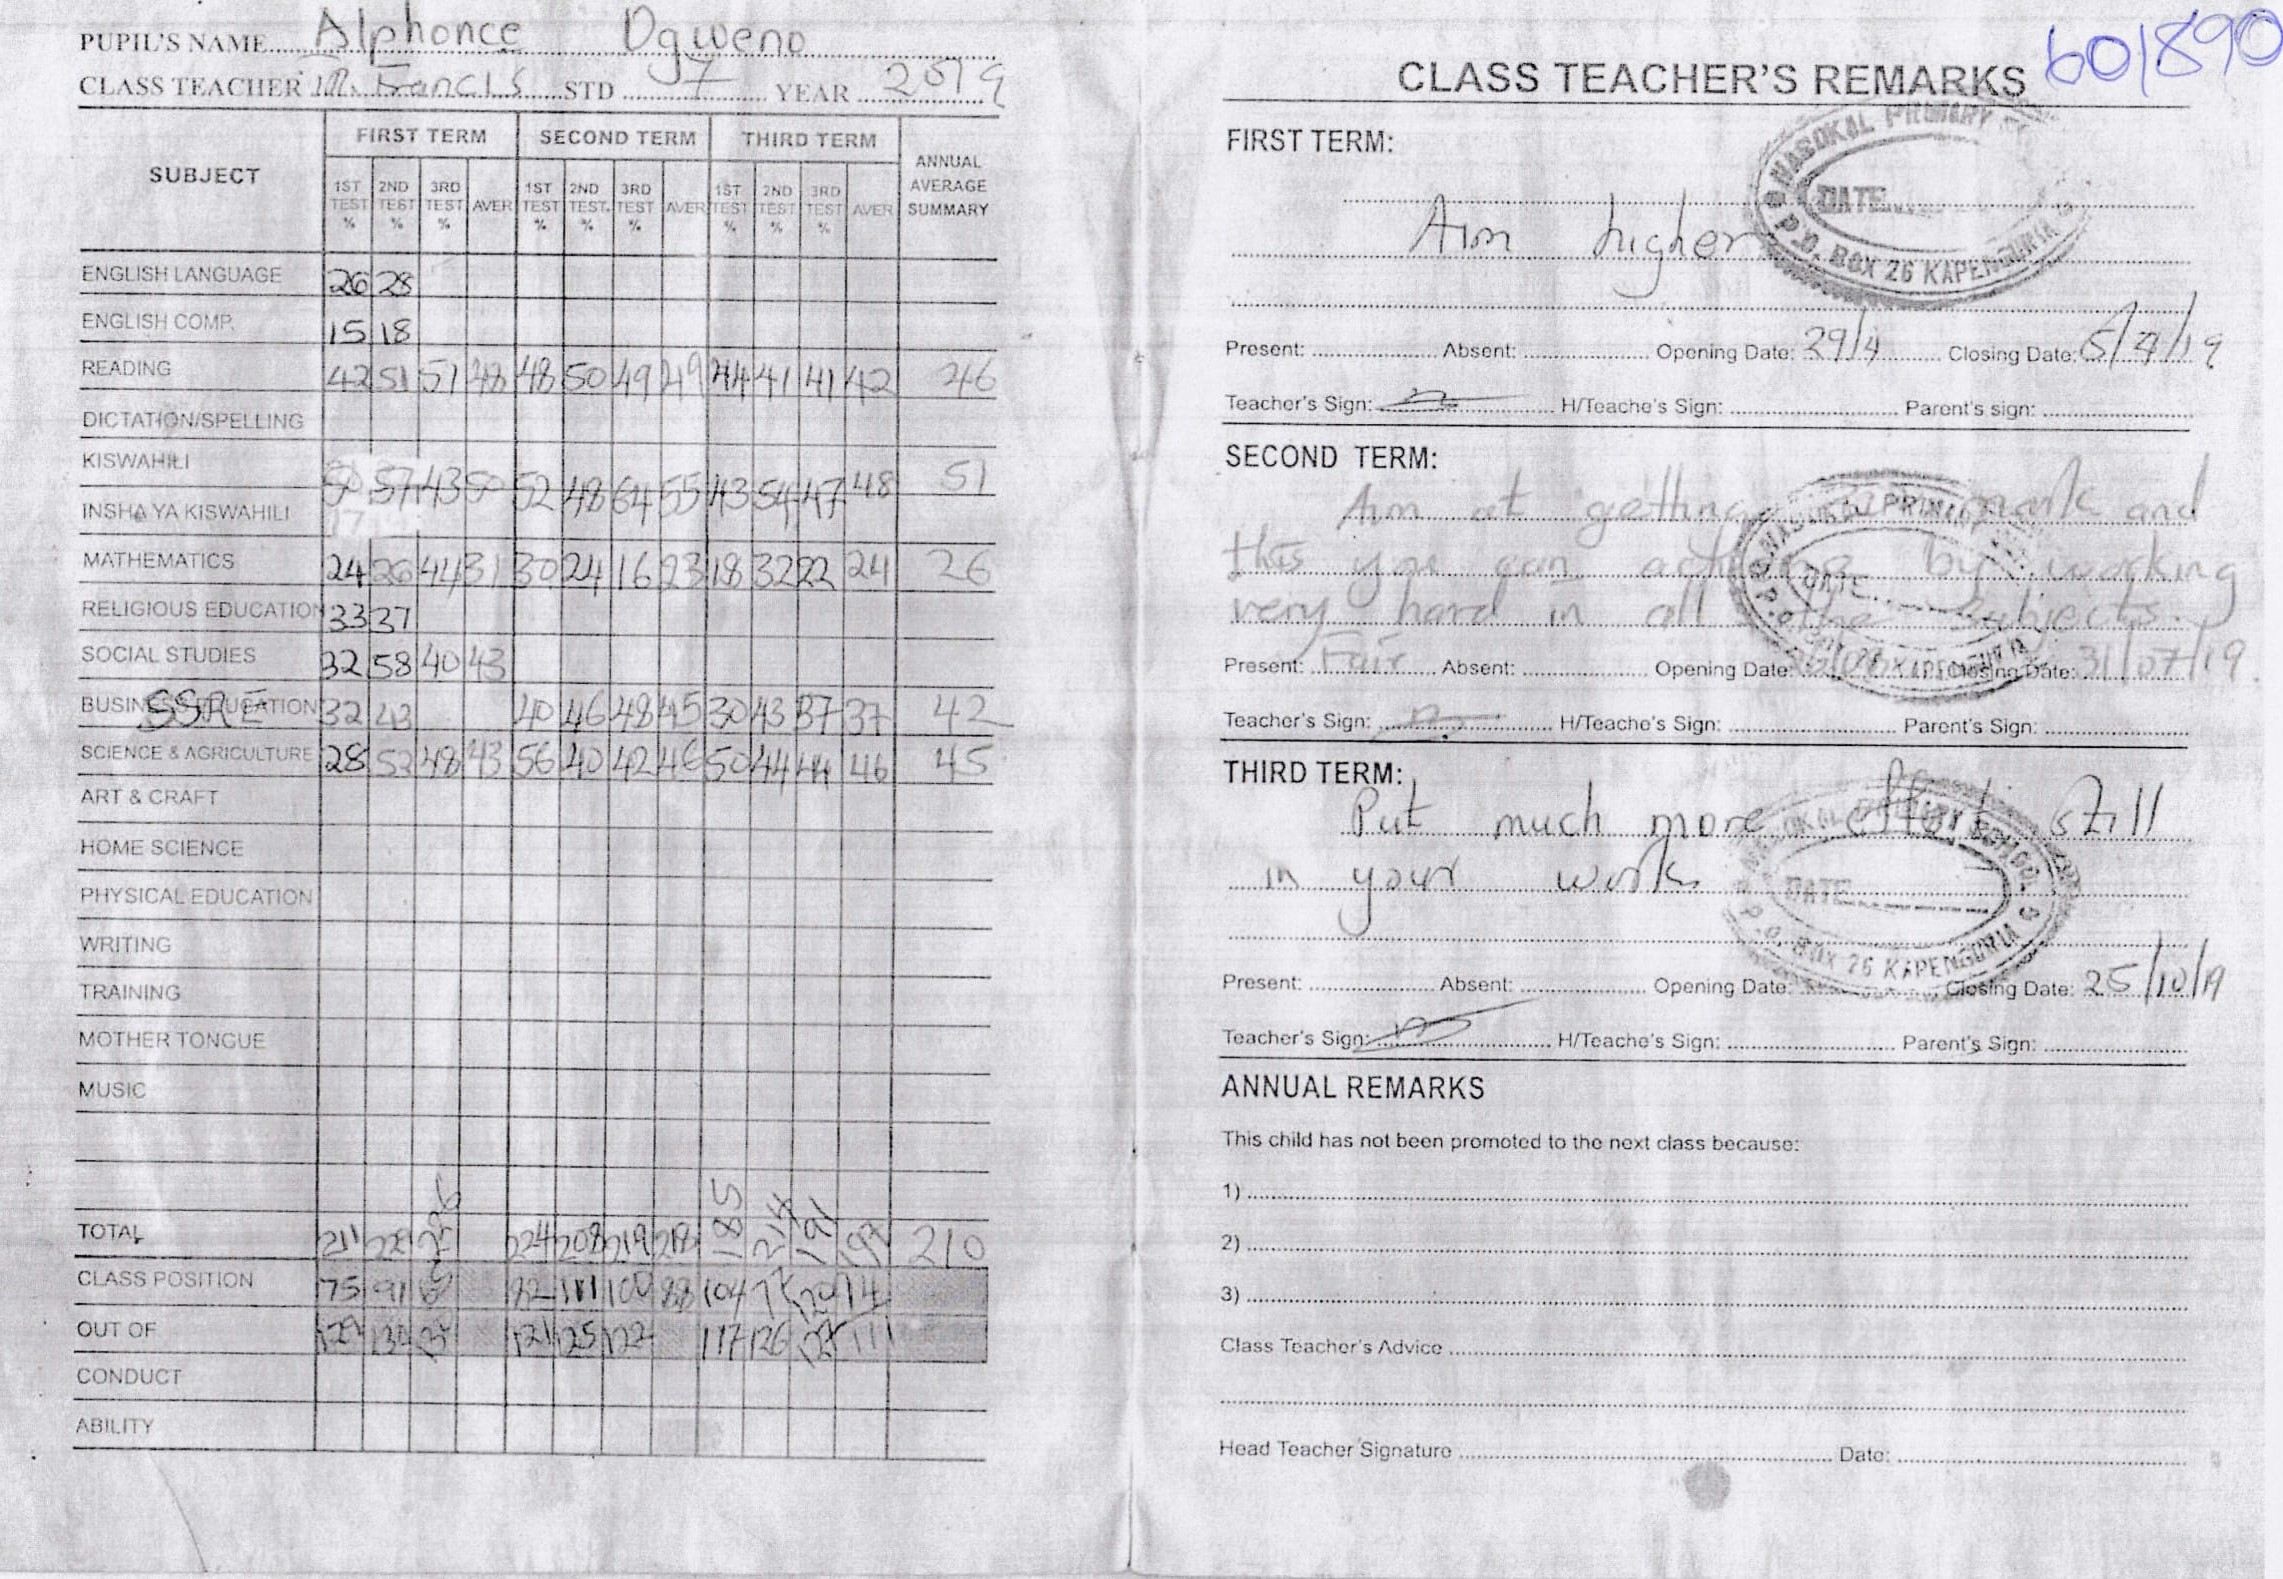 PUPIL'S NAME Alphonce Ogweno
CLASS TEACHER Mr. Francis STD 7 YEAR 2019
SUBJECT FIRST TERM SECOND TERM THIRD TERM ANNUAL AVERAGE SUMMARY
1ST TEST % 2ND TEST % 3RD TEST % AVER 1ST TEST % 2ND TEST. % 3RD TEST % AVER 1ST TEST % 2ND TEST % 3RD TEST % AVER
ENGLISH LANGUAGE 26 28
ENGLISH COMP. 15 18
READING 42 51 51 48 48 50 49 49 44 41 41 42 46
DICTATION/SPELLING
KISWAHILI 50 57 43 50 52 48 64 55 43 54 47 48 51
INSHA YA KISWAHILI 17
MATHEMATICS 24 26 44 31 30 24 16 23 18 32 22 24 26
RELIGIOUS EDUCATION 33 37
SOCIAL STUDIES 32 58 40 43
BUSINESS EDUCATION SSRE 32 43 40 46 48 45 30 43 37 37 42
SCIENCE & AGRICULTURE 28 52 48 43 56 40 42 46 50 44 44 46 45
ART & CRAFT
HOME SCIENCE
PHYSICAL EDUCATION
WRITING
TRAINING
MOTHER TONGUE
MUSIC
TOTAL 211 226 224 208 219 218 185 214 191 197 210
CLASS POSITION 75 91 111 100 88 104 77
OUT OF 130 121 125 122 117 126 111
CONDUCT
ABILITY
601890
CLASS TEACHER'S REMARKS
FIRST TERM:
Aim higher
NASOKAL PRIMARY
DATE
P.O. BOX 26 KAPENGURIA
Present: Absent: Opening Date: 29/4 Closing Date: 5/4/19
Teacher's Sign: H/Teache's Sign: Parent's sign:
SECOND TERM:
Aim at getting mark and
this you can achieve by working
very hard in all the subjects.
Present: Fair Absent: Opening Date: Closing Date: 31/07/19
Teacher's Sign: H/Teache's Sign: Parent's Sign:
THIRD TERM:
Put much more effort still
in your work
DATE
P.O. BOX 26 KAPENGURIA
Present: Absent: Opening Date: Closing Date: 25/10/19
Teacher's Sign: H/Teache's Sign: Parent's Sign:
ANNUAL REMARKS
This child has not been promoted to the next class because:
1)
2)
3)
Class Teacher's Advice
Head Teacher Signature Date: